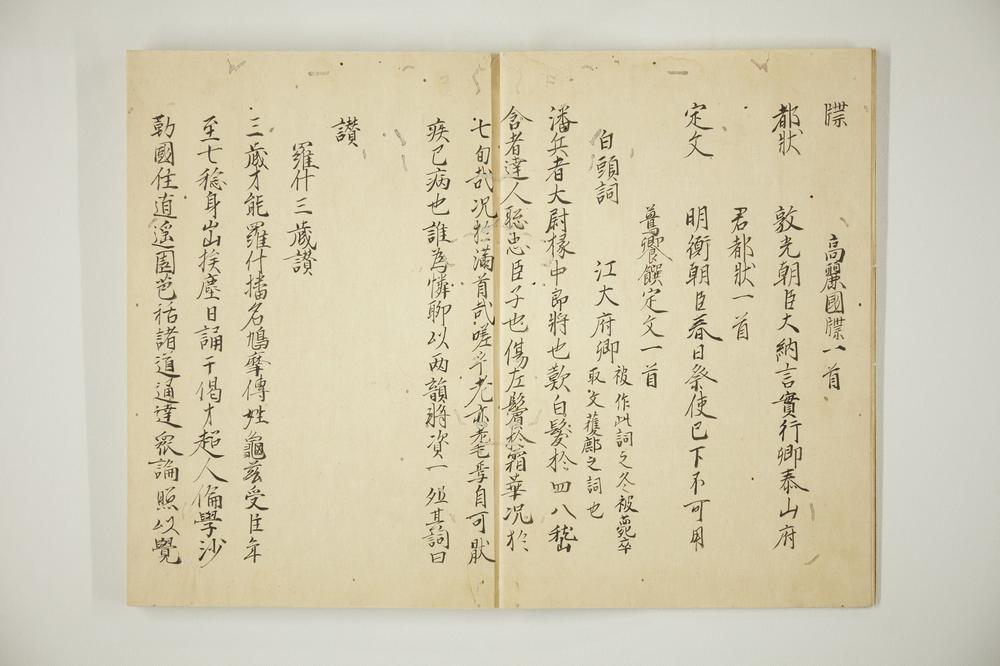 牒
高麗國牒一首
都狀
敦光朝臣大納言實行卿泰山府
君都狀一首
定文
明衡朝臣春日祭使已下不可用
饗饌定文一首
白頭詞
江大府卿
被作此詞之冬被薨卒
取文獲麟之詞也
潘兵者大尉掾中郎將也歎白髮於四八嵇
含者達人聡忠臣子也傷左鬢於霜華况於
七旬哉况於滿首哉嗟乎老亦耄妻自可猒
疾已病也誰為憐聊以两韻將資一𠷣其詞曰
讃
羅什三歲讃
三歲才能羅什播名鳩摩傳姓龜茲受
至七稔身出挨塵日誦千偈才超人倫學沙
勒國住逍遥園芭祜諸道通達衆論照以覺